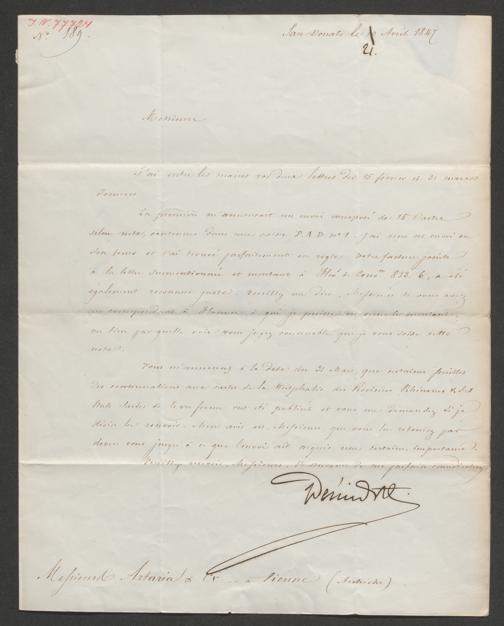 I.N. 77724
N° 589.
San Donato le 21 Avril 1847
Messieurs
J'ai entre les mains vos deux lettres des 15 février et 31 mars
derniers
La première m'annonçant un envoi composé de 15 Cartes
selon note, contenues dans une caisse P.A.D. n° 1. J'ai reçu cet envoi en
son tems et l'ai trouvé parfaitement en règle. votre facture jointe
à la lettre susmentionnée et montant à 832. 6, a été
également reconnue juste. veuillez me dire, Messieurs, si vous avez
un correspondant à Florence à qui je puisse en remettre le montant,
ou bien par quelle voie vous jugez convenable que je vous solde cette
note.
Vous m'annoncez à la date du 31 Mars, que certaines feuilles
des continuations aux cartes de la Westphalie des Provinces Rhénanes &
de leur forme ont été publiées et vous me demandez si je
désire les recevoir. Mon avis est, Messieurs, que vous les reteniez par
devers vous jusqu'à ce que l'envoi ait acquis une certaine importance.
Veuillez recevoir, Messieurs, l'assurance de ma parfaite considération
Messieurs Artaria & Cie à Vienne (Autriche).